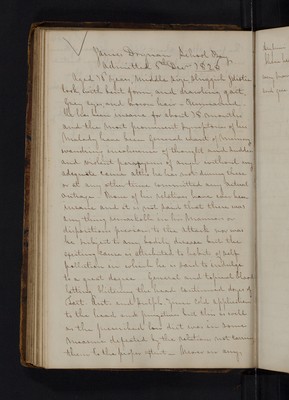 James Docman School Boy
Admitted 8th Dec 1826
Aged 18 years Middle Size
look, with bent form, and shambling gait
Grey eyes and brown hair — Unmarried
He has been insane for about 18 months
and the most prominent symptoms of his
Malady have been general want of
wandering incoherence of thought and sudden
and violent paroxysms of anger without any
adequate cause altho he has not during these
or at any other time committed any actual
outrage. None of his relations have ever been
insane and it is not said that there was
any thing remarkable in his Manners or
disposition previous to the attack nor was
he subject to any bodily disease but the
exciting cause is attributed to habits of self
pollution in which he is said to indulge
to a great degree. General and topical blood
letting blistering the head continued use of
Tart and Sulph cold applications
to the head and purgatives but this as well
as the prescribed low diet was in some
Measure defeated by the relations not carrying
them to the proper extent — were in any